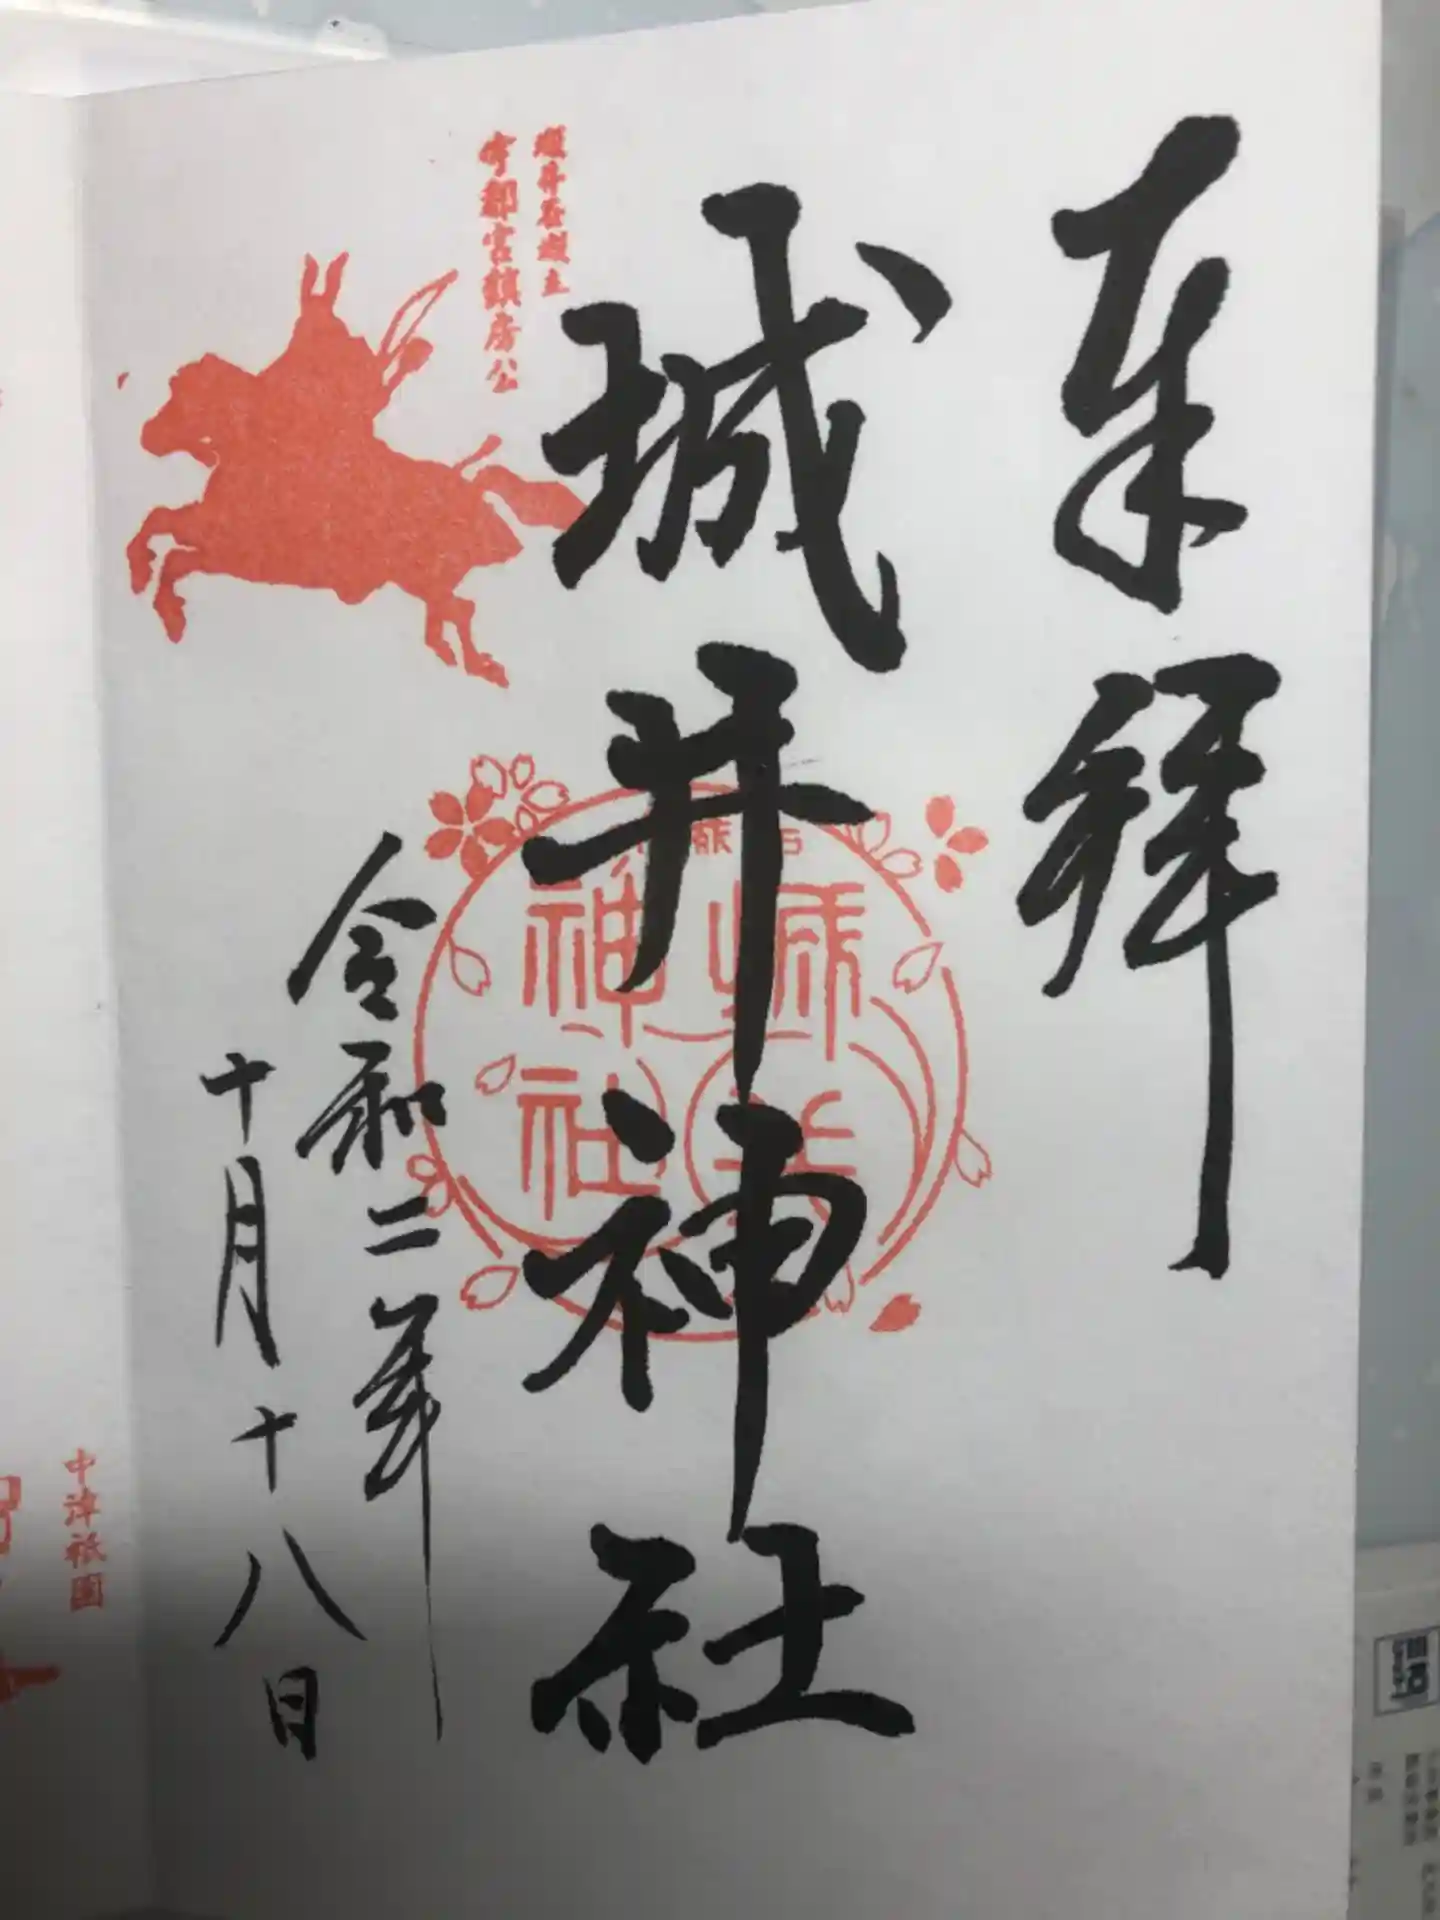 奉拝
城井神社
城井谷城主
宇都宮鎮房公
城井
神社
令和二年
十月十八日
中津祇園